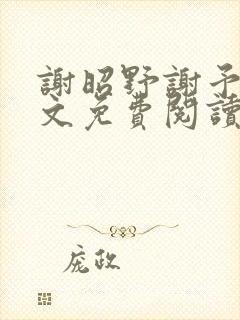 謝昭野謝予
文免費閱讀
庞政